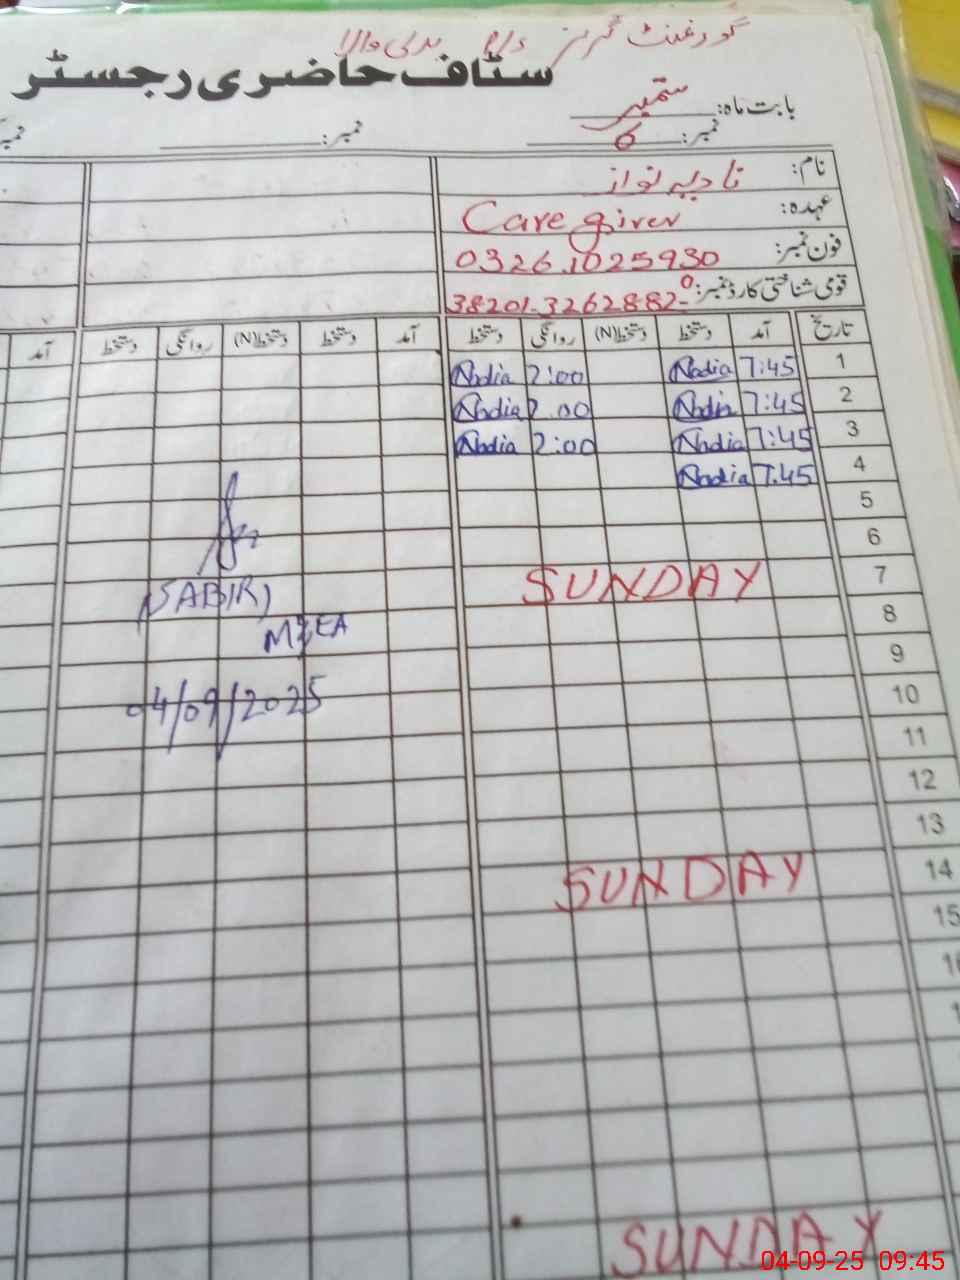 گورنمنٹ گرلز
سٹاف حاضری رجسٹر
بابت ماہ: ستمبر
نمبر: 6 نمبر:
نام: نادیہ نواز
عہدہ: Care giver
فون نمبر: 0326 1025930
قومی شناختی کارڈ نمبر: 38201-3262882-0
تاریخ آمد دستخط دستخط(N) روانگی دستخط آمد دستخط دستخط(N) روانگی دستخط آمد
1 7:45 Nadia 2:00 Nadia
2 7:45 Nadia 2.00 Nadia
3 7:45 Nadia 2:00 Nadia
4 7.45 Nadia
5
6
7 SUNDAY
(SABIR)
8
MEA
9
10
04/09/2025
11
12
13
14 SUNDAY
15
SUNDAY
04-09-25 09:45